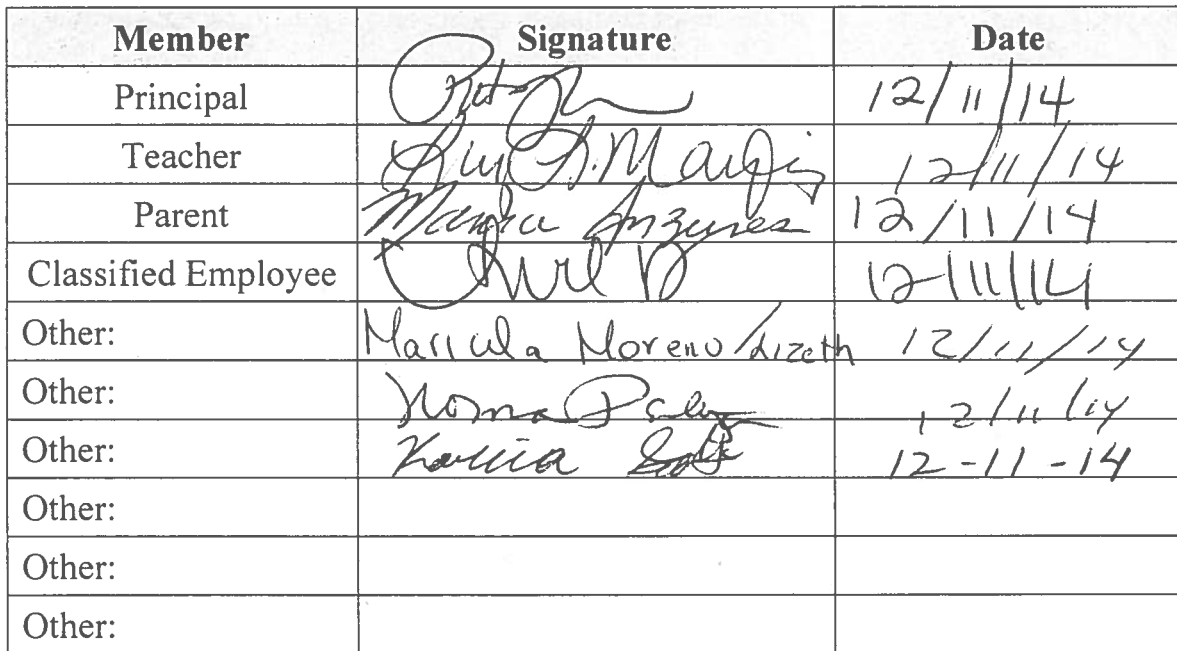 Member Signature Date
Principal 12/11/14
Teacher 12/11/14
Parent Maria Anzures 12/11/14
Classified Employee 12/11/14
Other: Moreno/Lizeth 12/11/14
Other: Norma 12/11/14
Other: 12-11-14
Other:
Other:
Other: